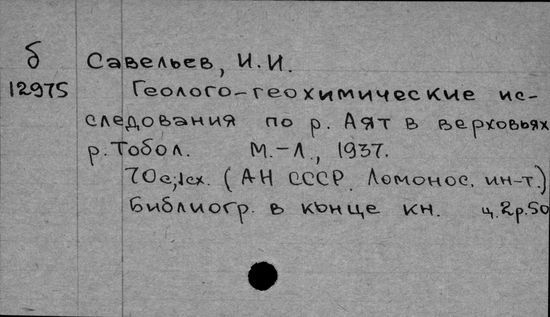 б Савельев, И.И.
12975 Геолого-геохимические ис-
следования по р. Аят в верховьях
р. Тобол. М.-Л., 1937.
70с; 1сх. (АН СССР. Ломонос. ин-т.)
Библиогр. в конце кн. ц. 2р.50